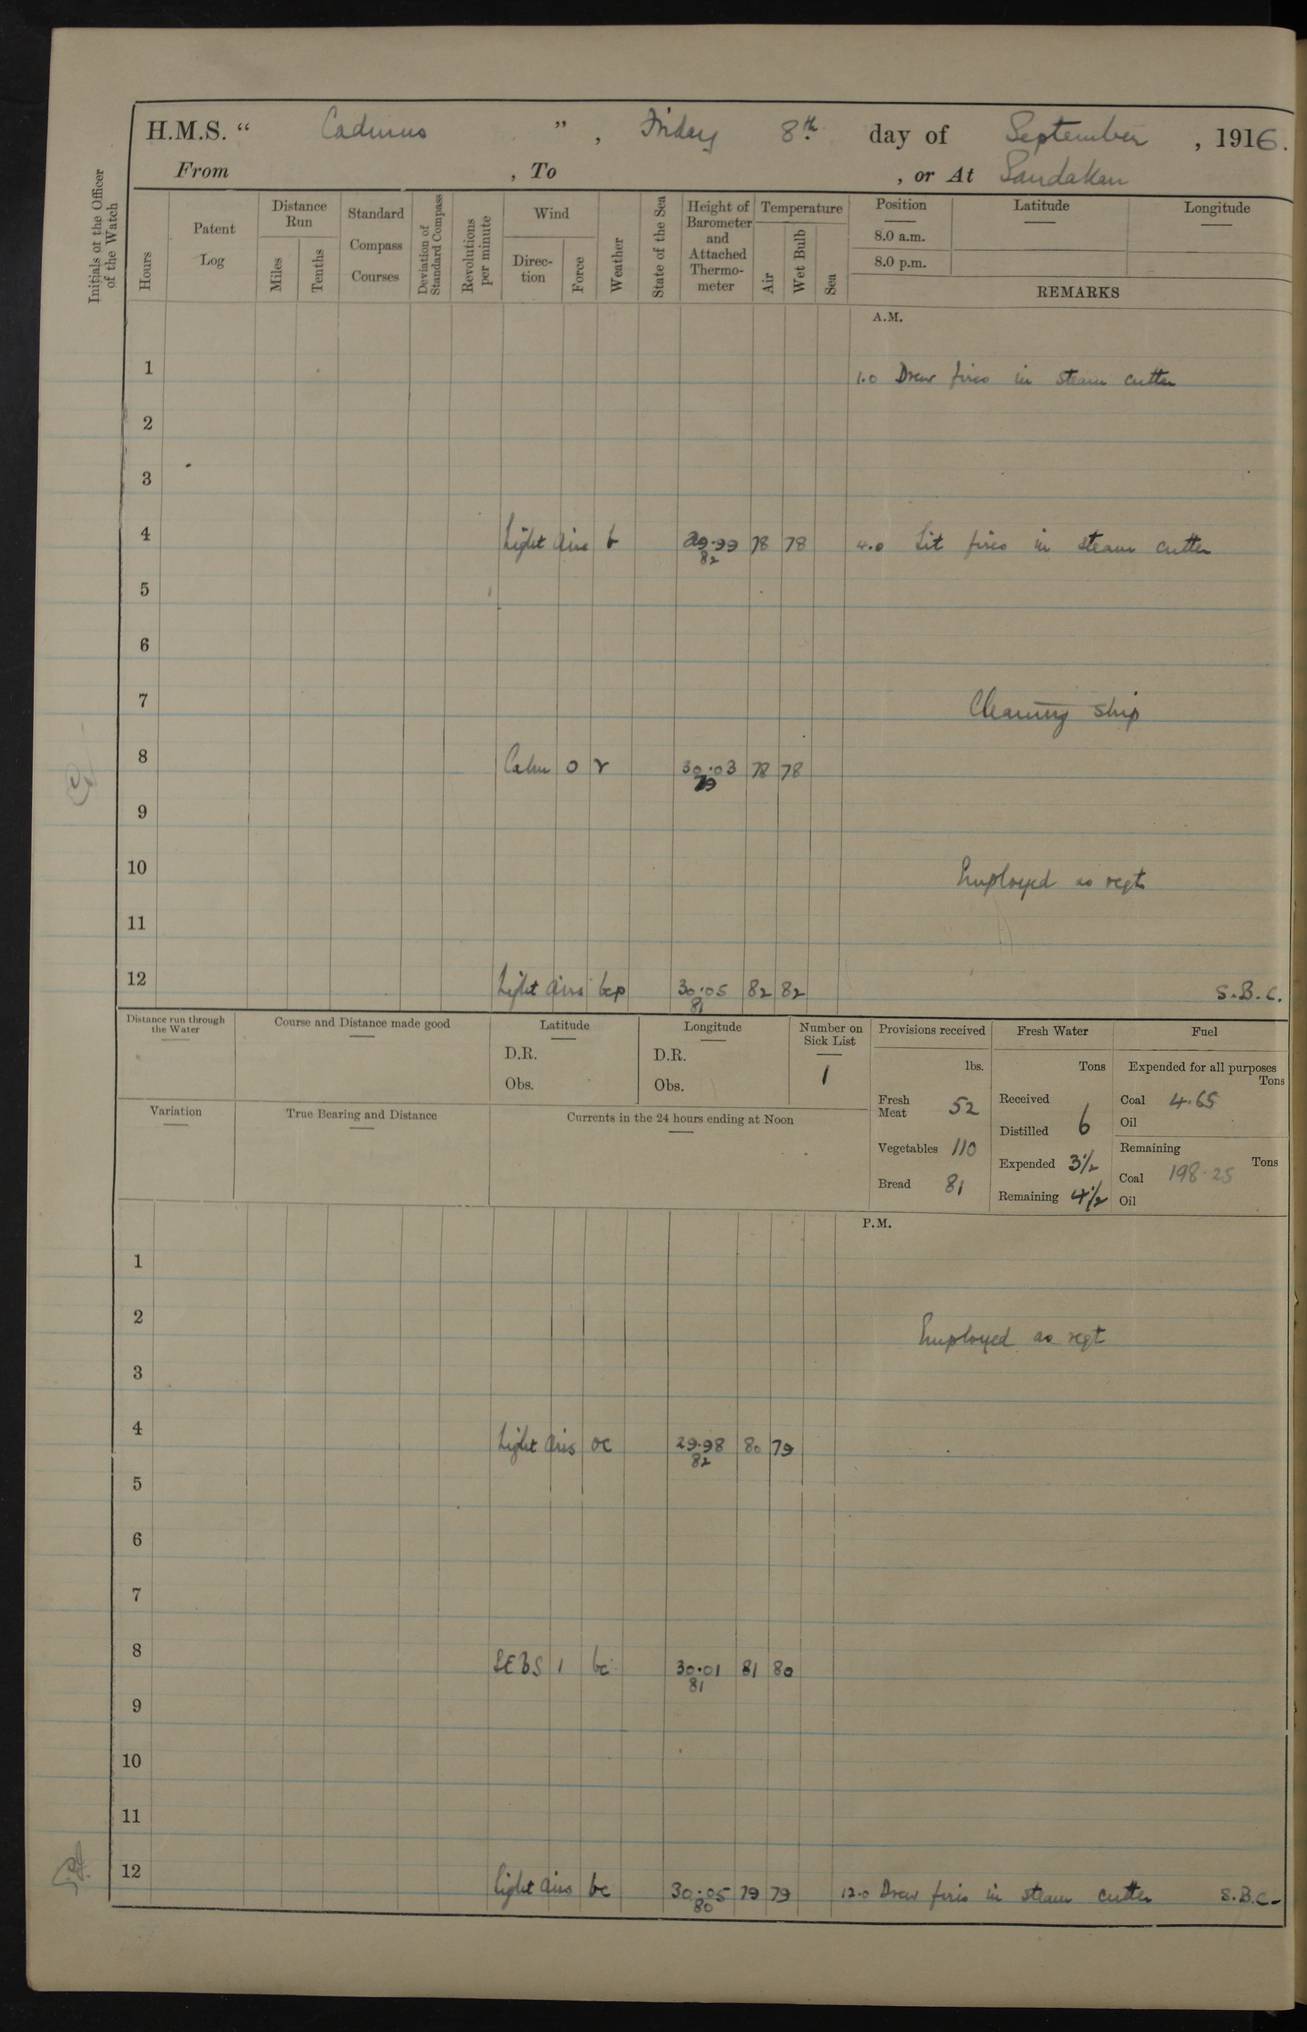 H.M.S. “ Cadmus ” , Friday 8th. day of September , 1916.
From , To , or At Sandakan
Initials of the Officer of the Watch
Hours
Patent Log
Distance Run
Miles
Tenths
Standard Compass Courses
Deviation of Standard Compass
Revolutions per minute
Wind
Direc-tion
Force
Weather
State of the Sea
Height of Barometer and Attached Thermo-meter
Temperature
Air
Wet Bulb
Sea
Position Latitude Longitude
8.0 a.m.
8.0 p.m.
REMARKS
A.M.
1 1.0 Drew fires in steam cutter
2
3
4 Light airs b 29.99 78 78 4.0 Lit fires in steam cutter
82
5
6
7 Cleaning ship
8 Calm 0 r 30.03 78 78
79
9
10 Employed as reqt
11
12 Light airs bcp 30.05 82 82 S.B.C.
81
Distance run through the Water
Course and Distance made good
Latitude
D.R.
Obs.
Longitude
D.R.
Obs.
Number on Sick List
1
Variation
True Bearing and Distance
Currents in the 24 hours ending at Noon
Provisions received
lbs.
Fresh Meat 52
Vegetables 110
Bread 81
Fresh Water
Tons
Received
Distilled 6
Expended 3½
Remaining 4½
Fuel
Expended for all purposes
Tons
Coal 4.65
Oil
Remaining
Tons
Coal 198.25
Oil
P.M.
1
2 Employed as reqt
3
4 Light airs oc 29.98 80 79
82
5
6
7
8 SEBS 1 bc 30.01 81 80
81
9
10
11
12 Light airs bc 30.05 79 79 12.0 Drew fires in steam cutter S.B.C.
80